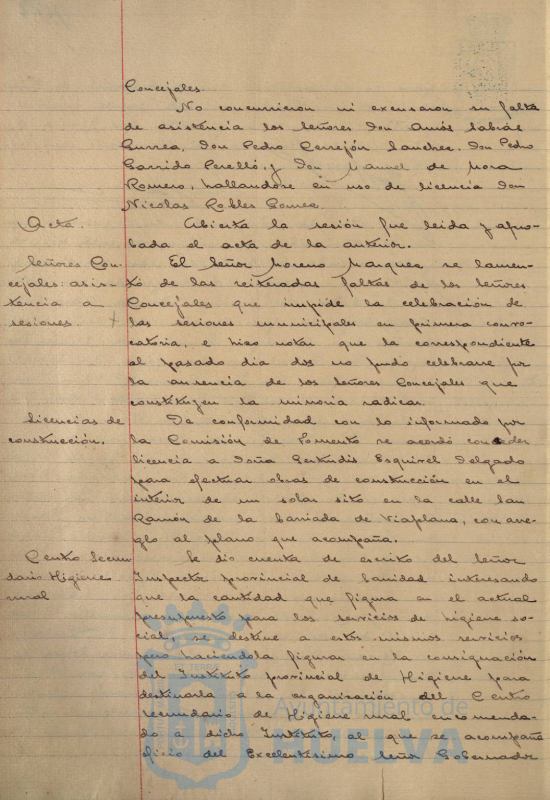 Concejales.
No concurrieron ni excusaron su falta
de asistencia los Señores Don Amós Sabrás
Gurrea, Don Pedro Cerrejón Sanchez, Don Pedro
Garrido Perelló, y Don Manuel de Mora
Romero, hallandose en uso de licencia Don
Nicolas Robles Gomez.
Acta.
Abierta la sesión fue leida y apro-
bada el acta de la anterior.
Señores Con-
cejales: asis-
tencia a
sesiones.
El Señor Moreno Marquez se lamen-
tó de las reiteradas faltas de los Señores
Concejales que impide la celebración de
las sesiones municipales en primera convo-
catoria, e hizo notar que la correspondiente
al pasado dia dos no pudo celebrarse por
la ausencia de los Señores Concejales que
constituyen la minoria radical.
Licencias de
construcción.
De conformidad con lo informado por
la Comisión de Fomento se acordó conceder
licencia a Doña Gertrudis Esquivel Delgado
para efectuar obras de construcción en el
interior de un solar sito en la calle San
Ramón de la barriada de Viaplana, con arre-
glo al plano que acompaña.
Centro Secun-
dario Higiene
rural
Se dio cuenta de escrito del Señor
Inspector provincial de Sanidad interesando
que la cantidad que figura en el actual
presupuesto para los servicios de higiene so-
cial, se destine a estos mismos servicios
pero haciendola figurar en la consignación
del Instituto provincial de Higiene para
destinarla a la organización del Centro
secundario de Higiene rural encomenda-
do a dicho Instituto, al que se acompaña
oficio del Excelentisimo Señor Gobernador
Ayuntamiento de
HUELVA